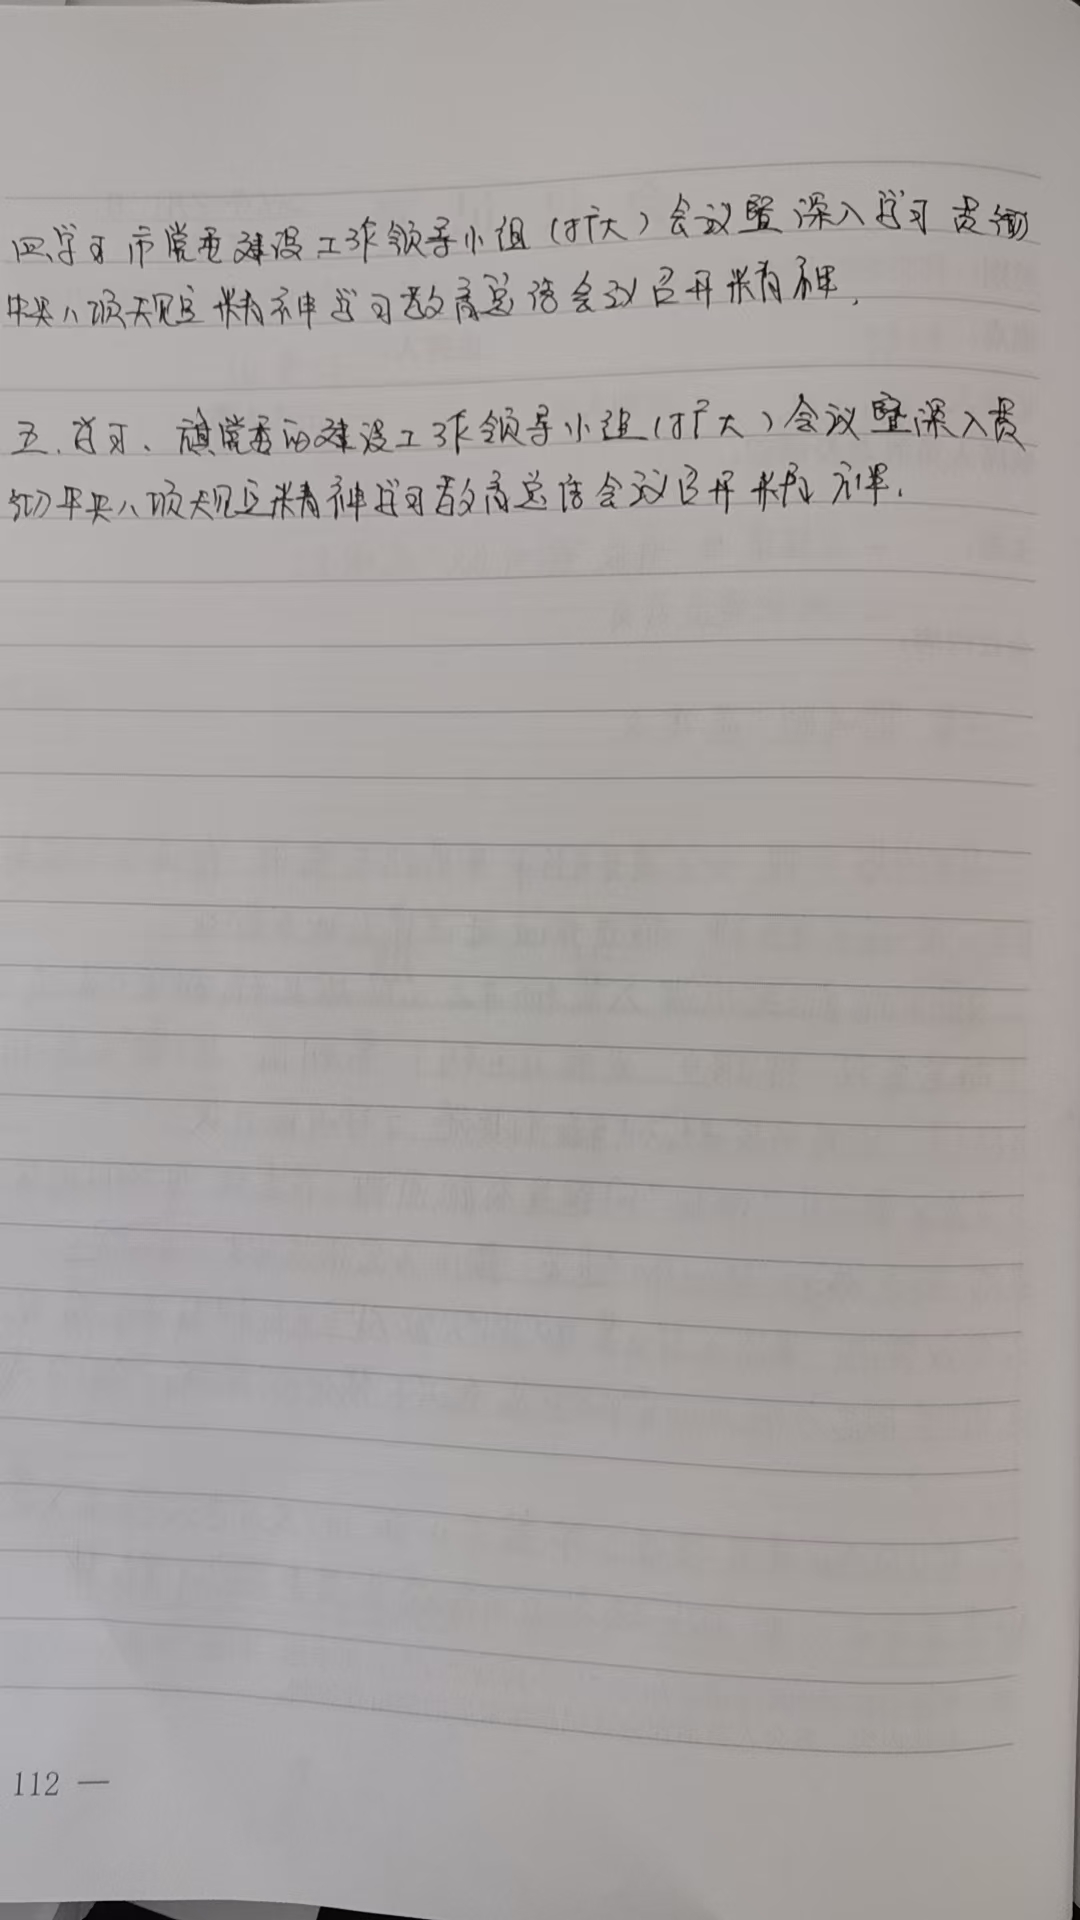 四、学习市党委建设工作领导小组(扩大)会议暨深入学习贯彻
中央八项规定精神学习教育总结会议召开精神,
五、学习、旗党委的建设工作领导小组(扩大)会议暨深入贯
彻中央八项规定精神学习教育总结会议召开精神.
112 —